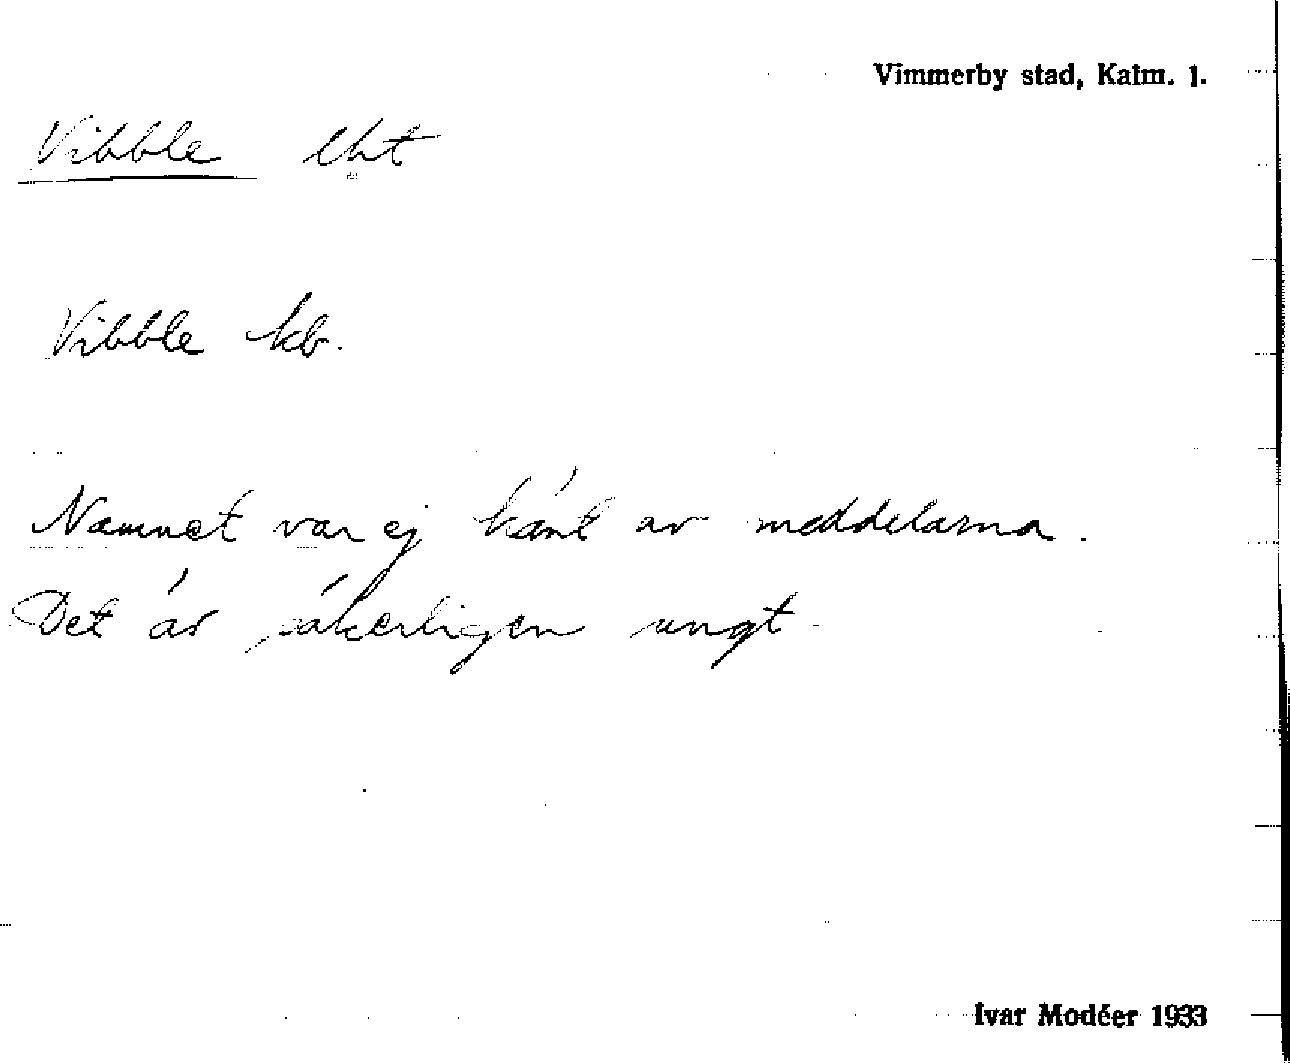 Vimmerby stad, Kalm. l.
Vibble lht
Vibble kb.
Namnet var ej känt av meddelarna.
Det är säkerligen ungt.
Ivar Modéer 1933